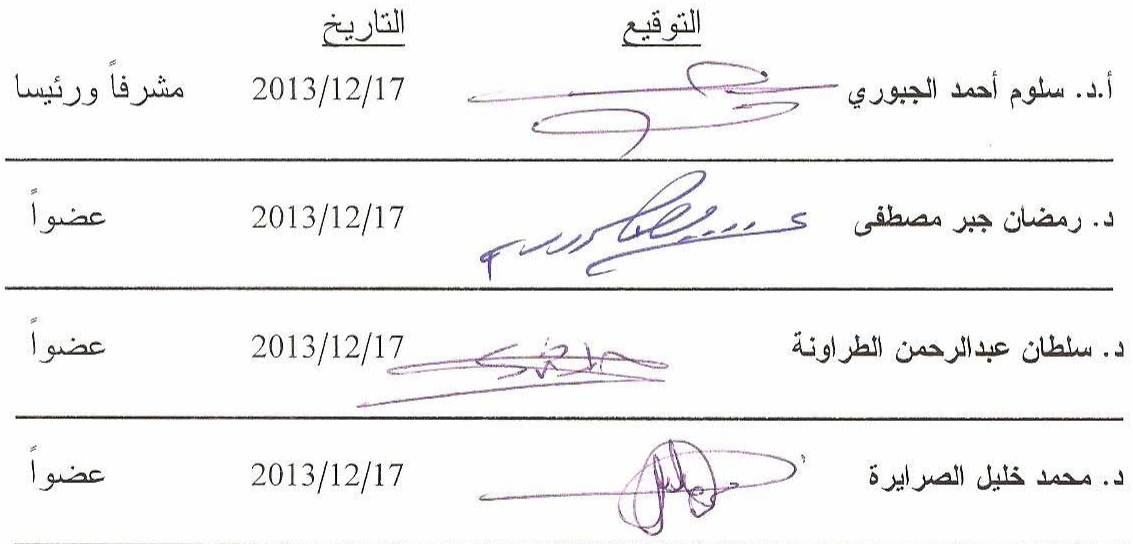 التوقيع التاريخ
أ.د. سلوم أحمد الجبوري 2013/12/17 مشرفاً ورئيسا
د. رمضان جبر مصطفى 2013/12/17 عضواً
د. سلطان عبدالرحمن الطراونة 2013/12/17 عضواً
د. محمد خليل الصرايرة 2013/12/17 عضواً